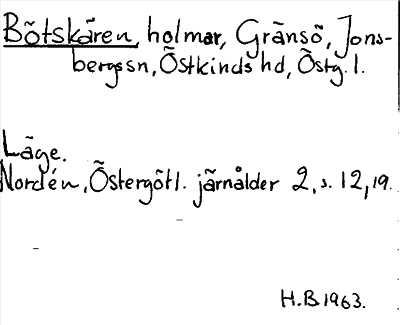 Bötskären, holmar, Gränsö, Jons-
bergssn, Östkinds hd, Östg. l.
Läge.
Nordén, Östergötl. järnålder 2, s. 12, 19.
H.B. 1963.